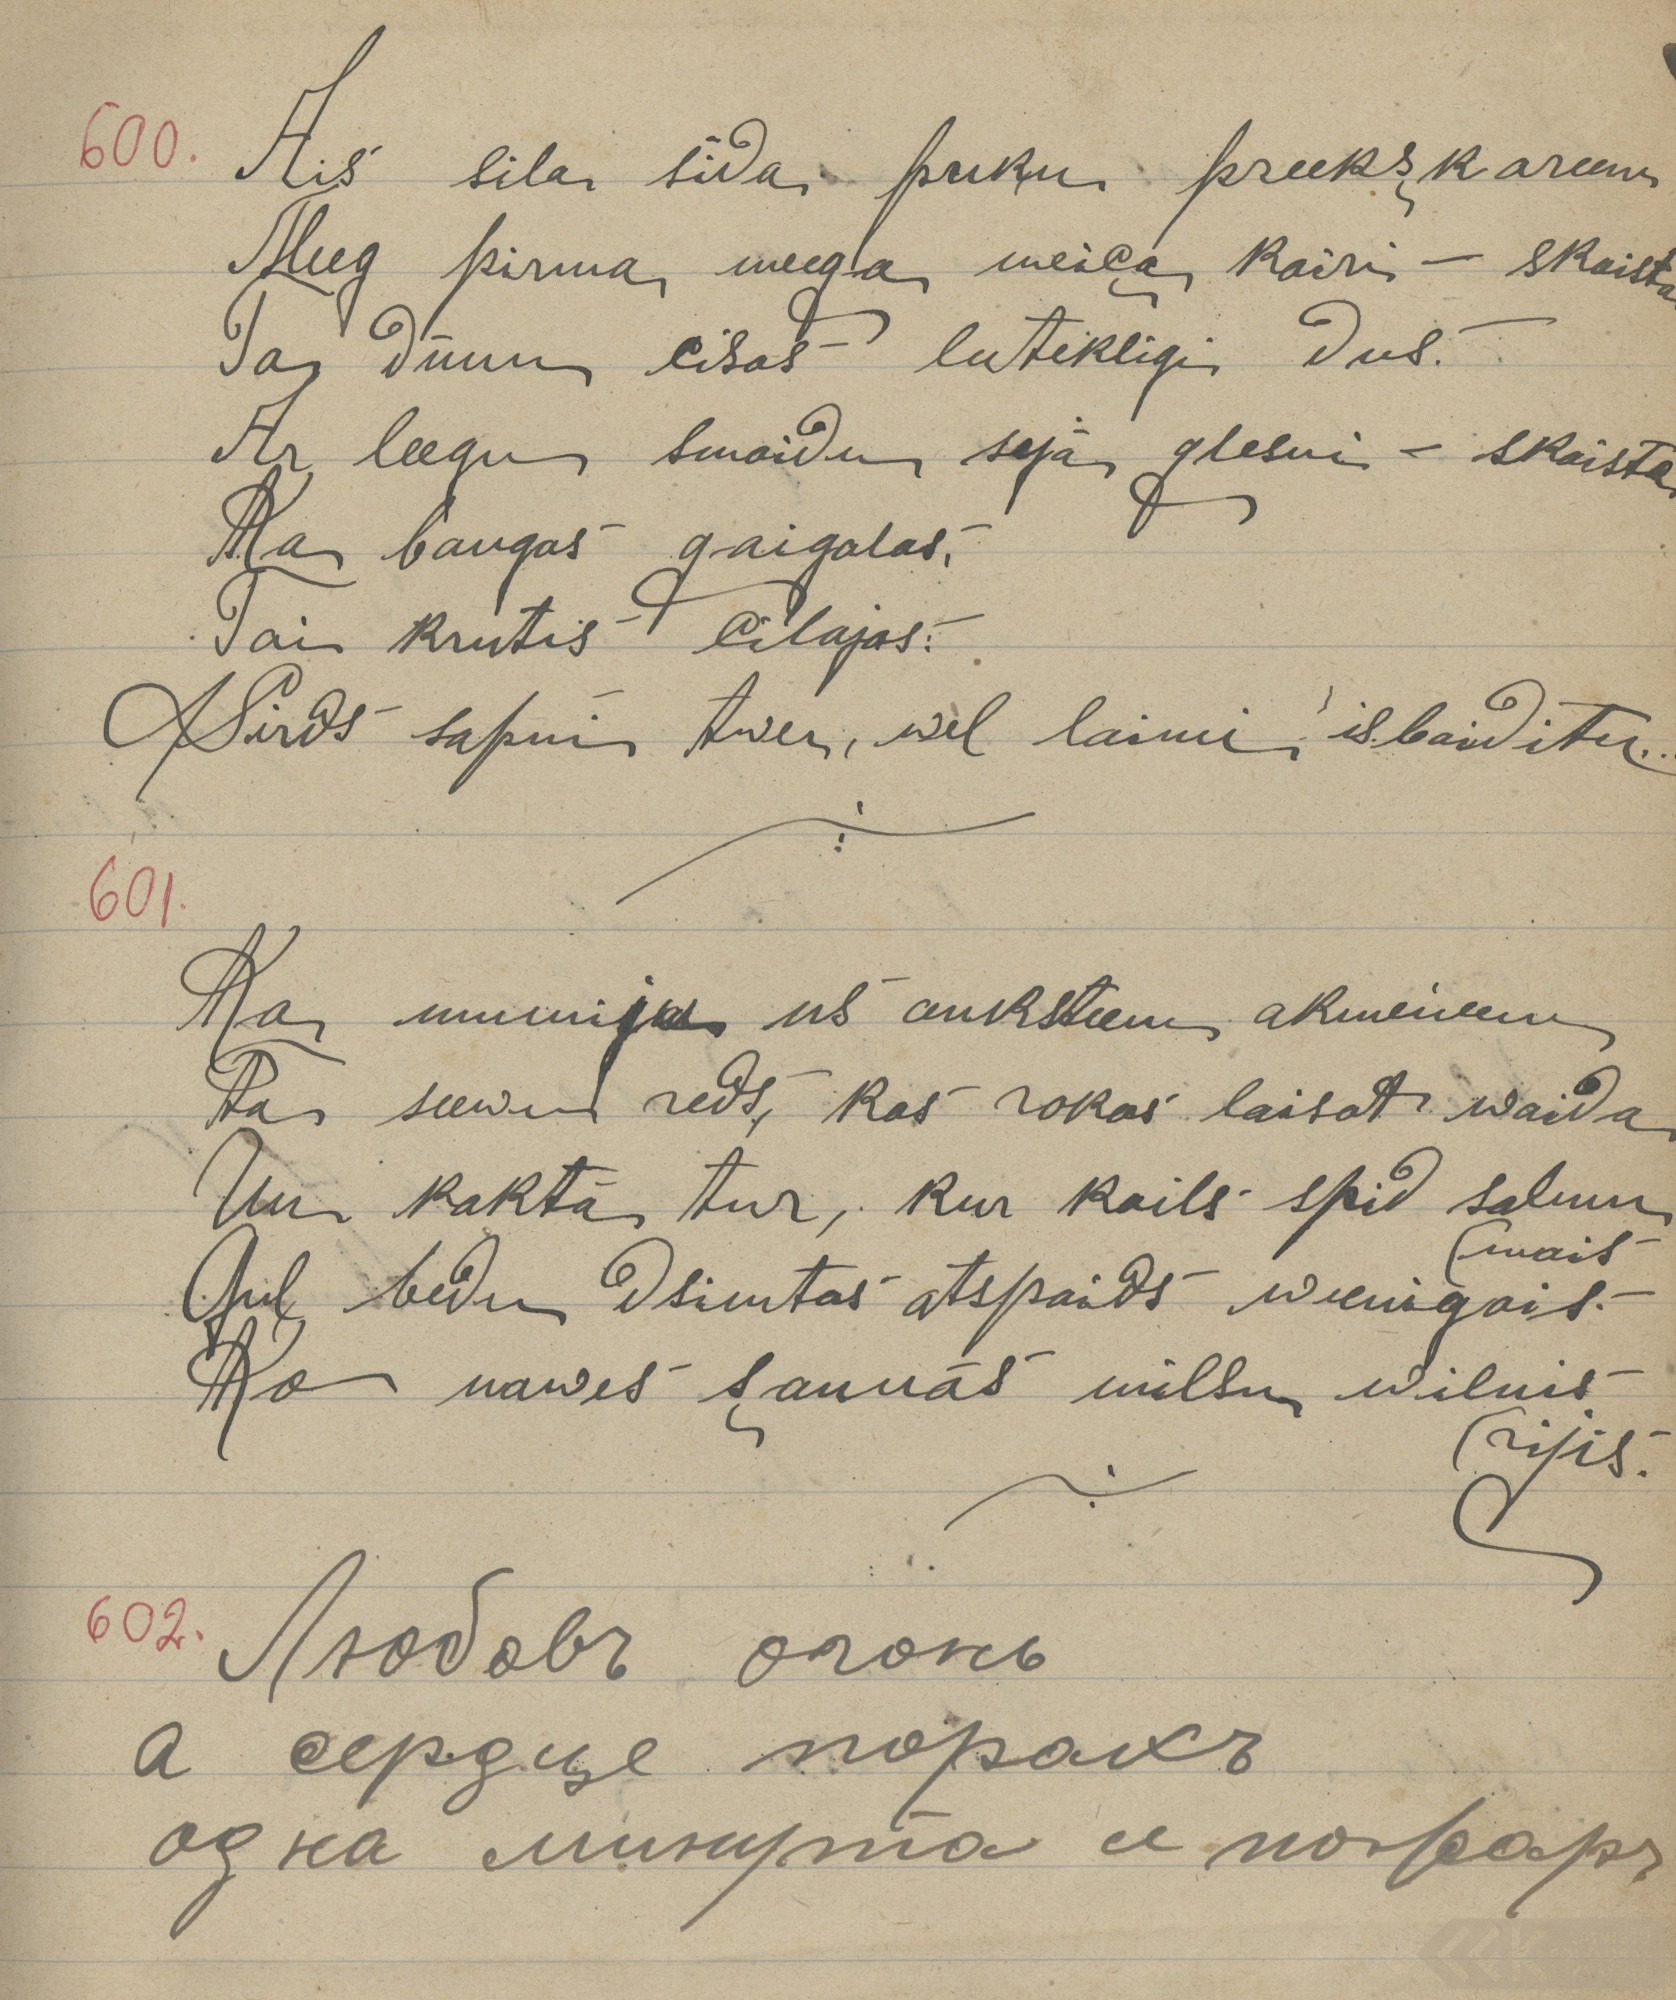 600. Ais sila sida puķu preekşkareem
Meeg pirmā meegā meiča kairi - skaista
Tā dūnu cisās lutekligi dus.
Ar leegu smaidu sejā glesni - skaistā
Kā bangas gaigalas,
Tai krutis cilājas:
Sirds sapni twer, wel laimi isbaidītu...
601.
Kā mumija us auksteem akmeņeem
Tā seewu reds, kas rokas laisot waida
Un kaktā tur, kur kails spīd salmu
(mais
Gul bedu dsimtas atspaids weenigais.
Ko nawes şaunās milsu wilnis
(rijis.
602. Любовъ огонь
а сердце порахъ
одна минута и пожаръ